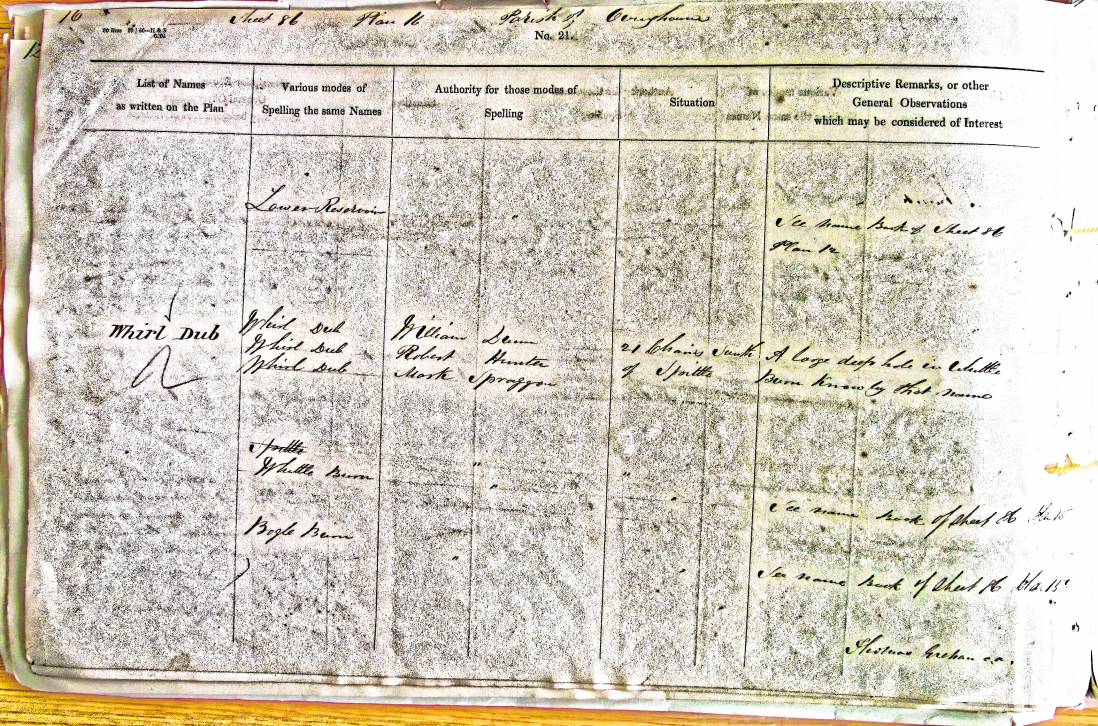 16 Sheet 86 Plan 16 Parish of Ovingham
No. 21.
List of Names
as written on the Plan
Various modes of
Spelling the same Names
Authority for those modes of
Spelling
Situation
Descriptive Remarks, or other
General Observations
which may be considered of Interest
Lower Reservoir
See name Book of Sheet 86
Plan 12
Whirl Dub
Whirl Dub
Whirl Dub
Whirl Dub
William Dunn
Robert Hunter
Mark Spraggon
21 Chains South
of Spittle
A large deep hole in Whittle
Burn Known by that name
Spittle
Whittle Burn
" "
" "
See name Book of Sheet 86 Pla. 15
Bogle Burn
" "
See name Book of Sheet 86 Pla. 15
Thomas c.a.